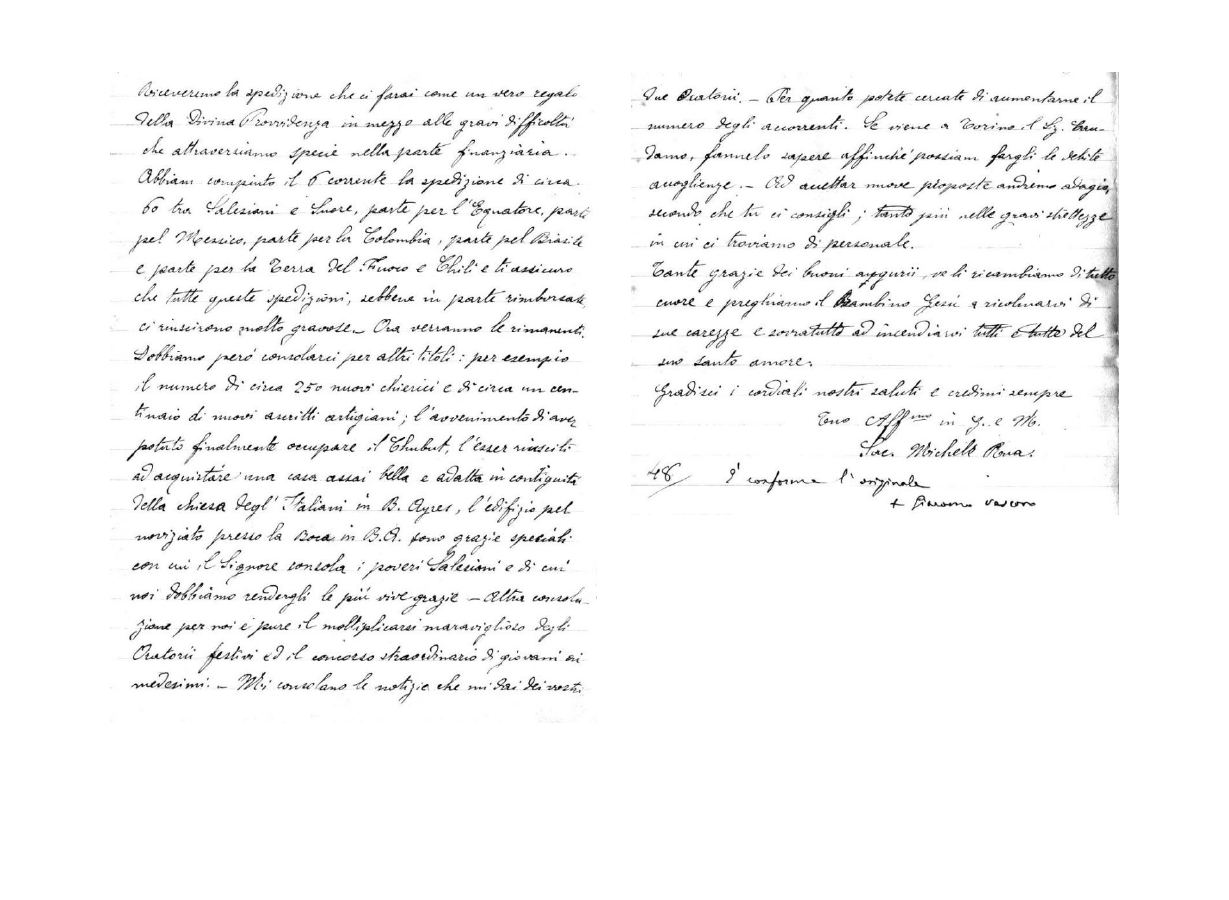 Riceveremo la spedizione che ci farai come un vero regalo
della Divina Provvidenza in mezzo alle gravi difficoltà
che attraversiamo specie nella parte finanziaria.
Abbiam compiuto il 6 corrente la spedizione di circa
60 tra Salesiani e Suore, parte per l'Equatore, parte
pel Messico, parte per la Colombia, parte pel Brasile
e parte per la Terra del Fuoco e Chilì e ti assicuro
che tutte queste spedizioni, sebbene in parte rimborsate,
ci riuscirono molto gravose. Ora verranno le rimanenti.
Dobbiamo però consolarci per altri titoli: per esempio
il numero di circa 250 nuovi chierici e di circa un cen-
tinaio di nuovi ascritti artigiani; l'avvenimento di aver
potuto finalmente occupare il Chubut, l'esser riusciti
ad acquistare una casa assai bella e adatta in contiguità
della chiesa degl'Italiani in B. Ayres, l'edifizio pel
noviziato presso la Boca in B.A. sono grazie speciali
con cui il Signore consola i poveri Salesiani e di cui
noi dobbiamo rendergli le più vive grazie — Altra consola-
zione per noi è pure il moltiplicarsi maraviglioso degli
Oratorii festivi ed il concorso straordinario di giovani ai
medesimi. — Mi consolano le notizie che mi dai dei vostri
due Oratorii. — Per quanto potete cercate di aumentarne il
numero degli accorrenti. Se viene a Torino il Sg.
damo, fannelo sapere affinché possiam fargli le debite
accoglienze. — Ad accettar nuove proposte andremo adagio,
secondo che tu ci consigli; tanto più nelle gravi strettezze
in cui ci troviamo di personale.
Tante grazie dei buoni augurii, ve li ricambiamo di tutto
cuore e preghiamo il Bambino Gesù a ricolmarvi di
sue carezze e sovratutto ad incendiarvi tutti e tutte del
suo santo amore.
Gradisci i cordiali nostri saluti e credimi sempre
Tuo Aff.mo in G. e M.
Sac. Michele Rua.
48/ È conforme l'originale
+ Giacomo vescovo